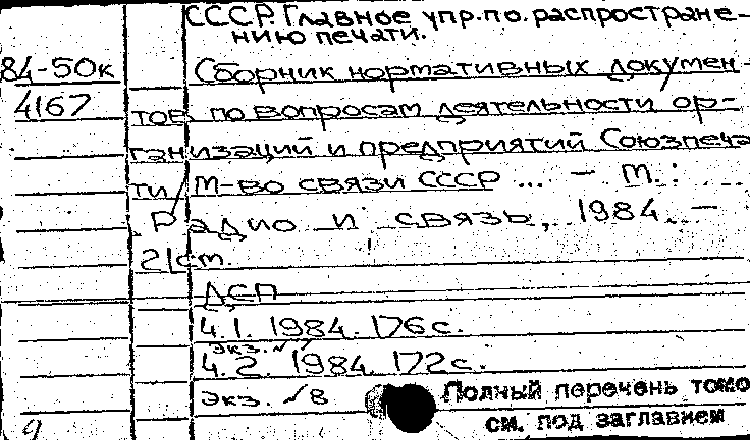 СССР. Главное упр. по. распростране-
нию печати.
84-50к Сборник нормативных докумен-
4167 тов по вопросам деятельности ор-
ганизаций и предприятий Союзпеча
ти / М-во связи СССР ... - М. :
Радио и связь, 1984. -
21 см.
ДСП
Ч.1. 1984. 176с.
экз. №
Ч.2. 1984. 172с.
экз. № 8
Полный перечень томо
см. под заглавием
9